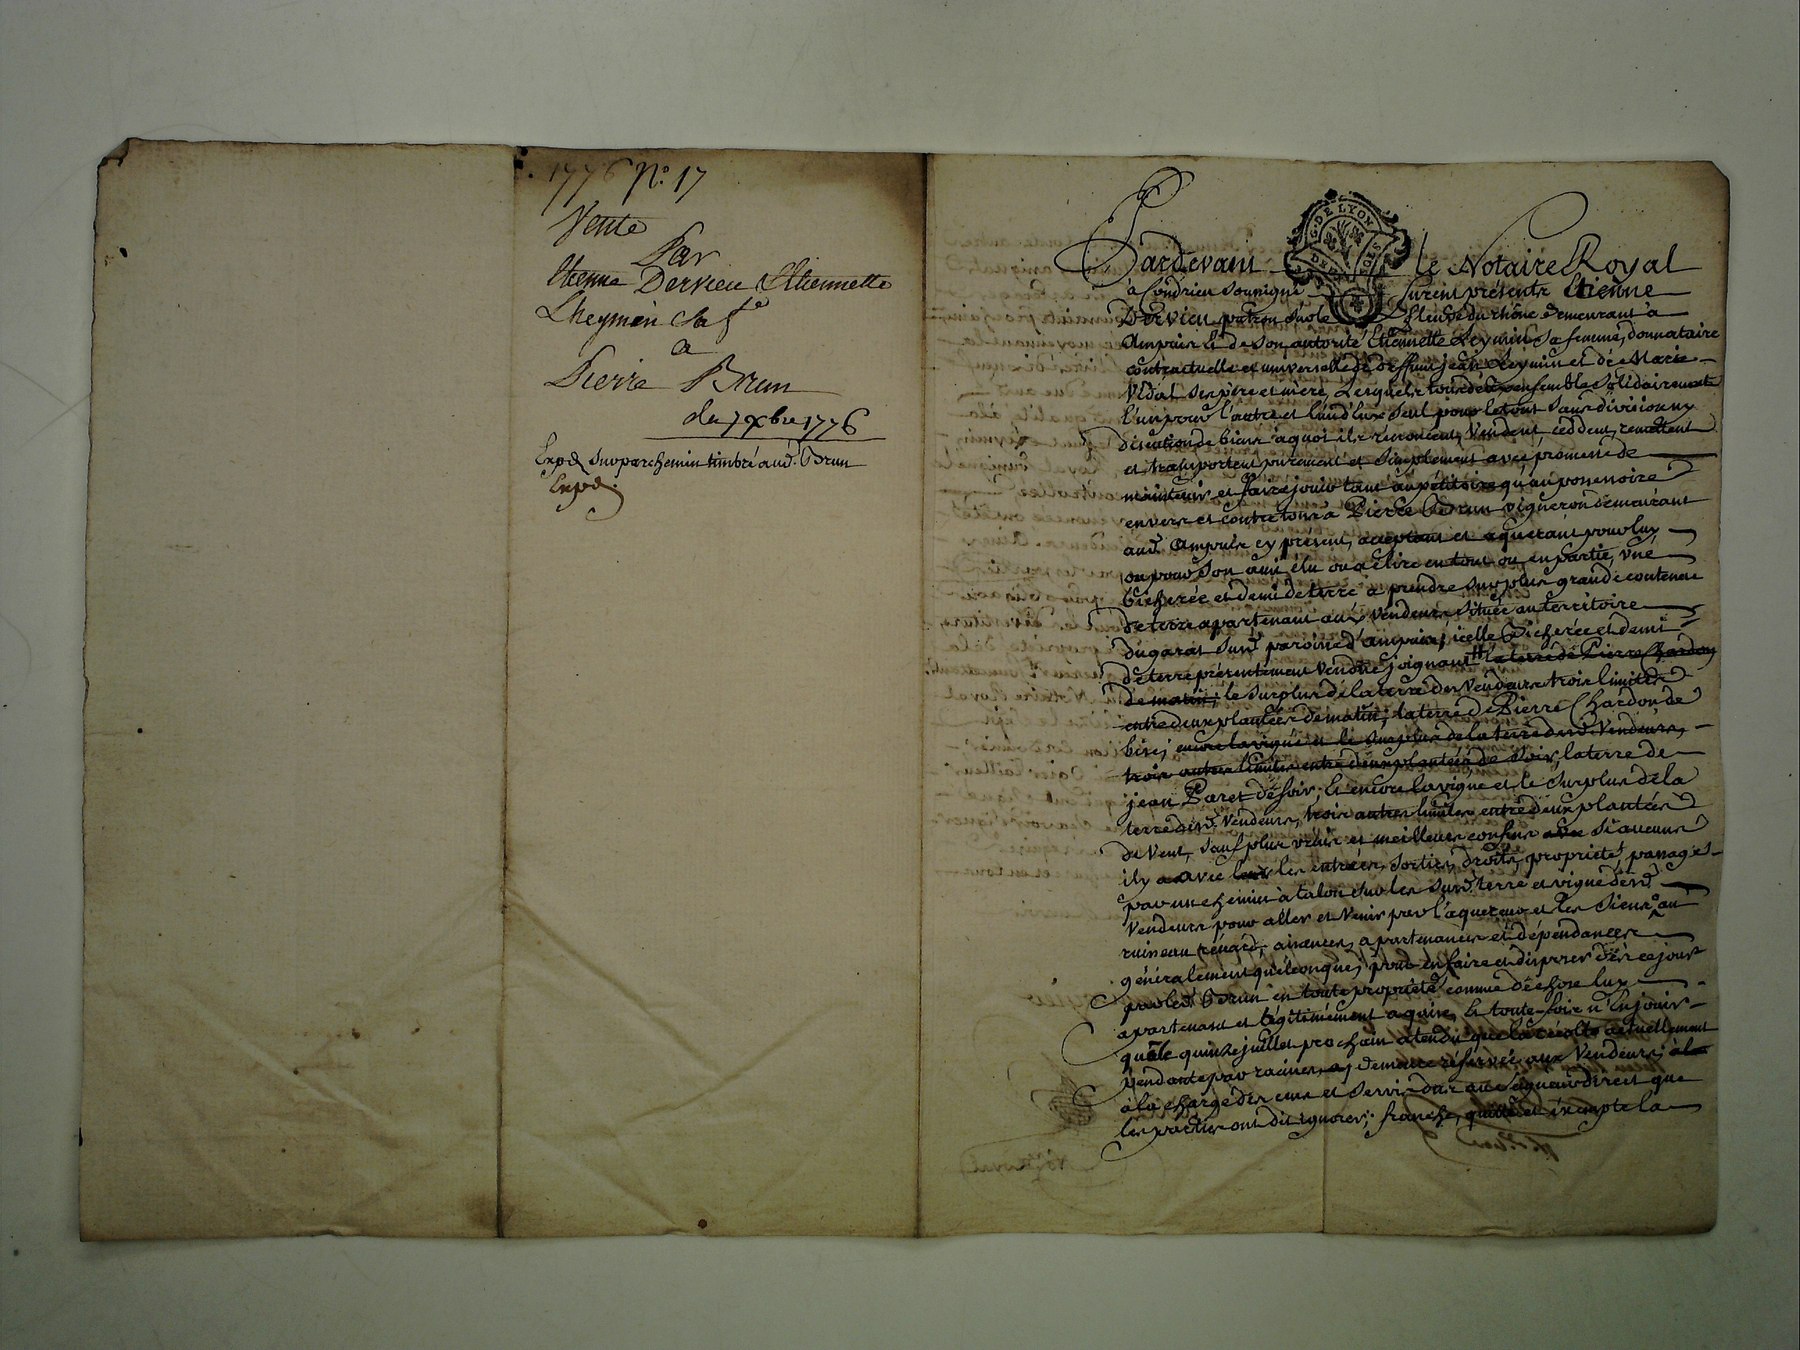 1776 N.° 17
Vente
Par
Etienne Dervieu & Etiennette
Lheymin sa fe
a
Pierre Brun
du 7 Xbre 1776
Exp.é sur parchemin timbré aud. Brun
Exp.é
G. DE LYON
Pardevant le Notaire Royal
à Condrieu soussigné furent présents Etienne
Dervieu patron sur le fleuve du rhône demeurant à
Ampuis & de son autorité Etiennette Leymin sa femme, donnataire
contractuelle et universelle de deffunt jean Leymin et de Marie
Vidal ses père et mère, Lesquels tous deux ensemble solidairement
l'un pour l'autre et l'un d'eux seul pour le tout sans division ny
discution de biens à quoi ils renoncent, Vendent ceddent, remettent
et transportent purement et simplement avec promesse de
maintenir et faire jouir tant au pétitoire qu'au possessoire
envers et contre tous à Pierre Brun vigneron demeurant
aud. Ampuis cy présent, acceptant et aquerant pour luy
ou pour son ami élu ou à élire en tout ou en partie, une
bicherée et demi de terre à prendre sur plus grande contenue
de terre apartenant aux vendeurs, située au territoire
du garat sud. paroisse d'ampuis, icelle bicherée et demi
de terre présentement vendue joignant la terre de Pierre Chardon
de matin; le surplus de la terre des Vendeurs trois limites
entre deux plantées de matin; la terre de Pierre Chardon de
bise; encore la vigne et le surplus de la terre desd. Vendeurs,
trois autres limites entre deux plantées de soir, la terre de
jean Paret de soir; & encore la vigne et le surplus de la
terre desd. Vendeurs, trois autres limites entre deux plantées
de Vent, sauf plus vrais et meilleurs confins si aucuns
il y a avec les entrées, sorties, droits, propriété, passages
par un chemin à talon sur les susd. terre et vigne desd.
Vendeurs pour aller et venir par l'aquereur et les siens au
ruisseau aisances, apartenances et dépendances
généralement quelconques, pour en faire et disposer dès ce jour
par led. Brun en toute propriété comme de chose lux
apartenant et légitimement aquise, & toute fois n'en jouir
qu'au quinze juillet prochain atendu que la récolte actuellement
pendante par racines, demeure réservée aux Vendeurs; à la
à la charge des cens et servis dus au seigneur direct que
les parties ont dit ignorer; franche, quitte et exempte la